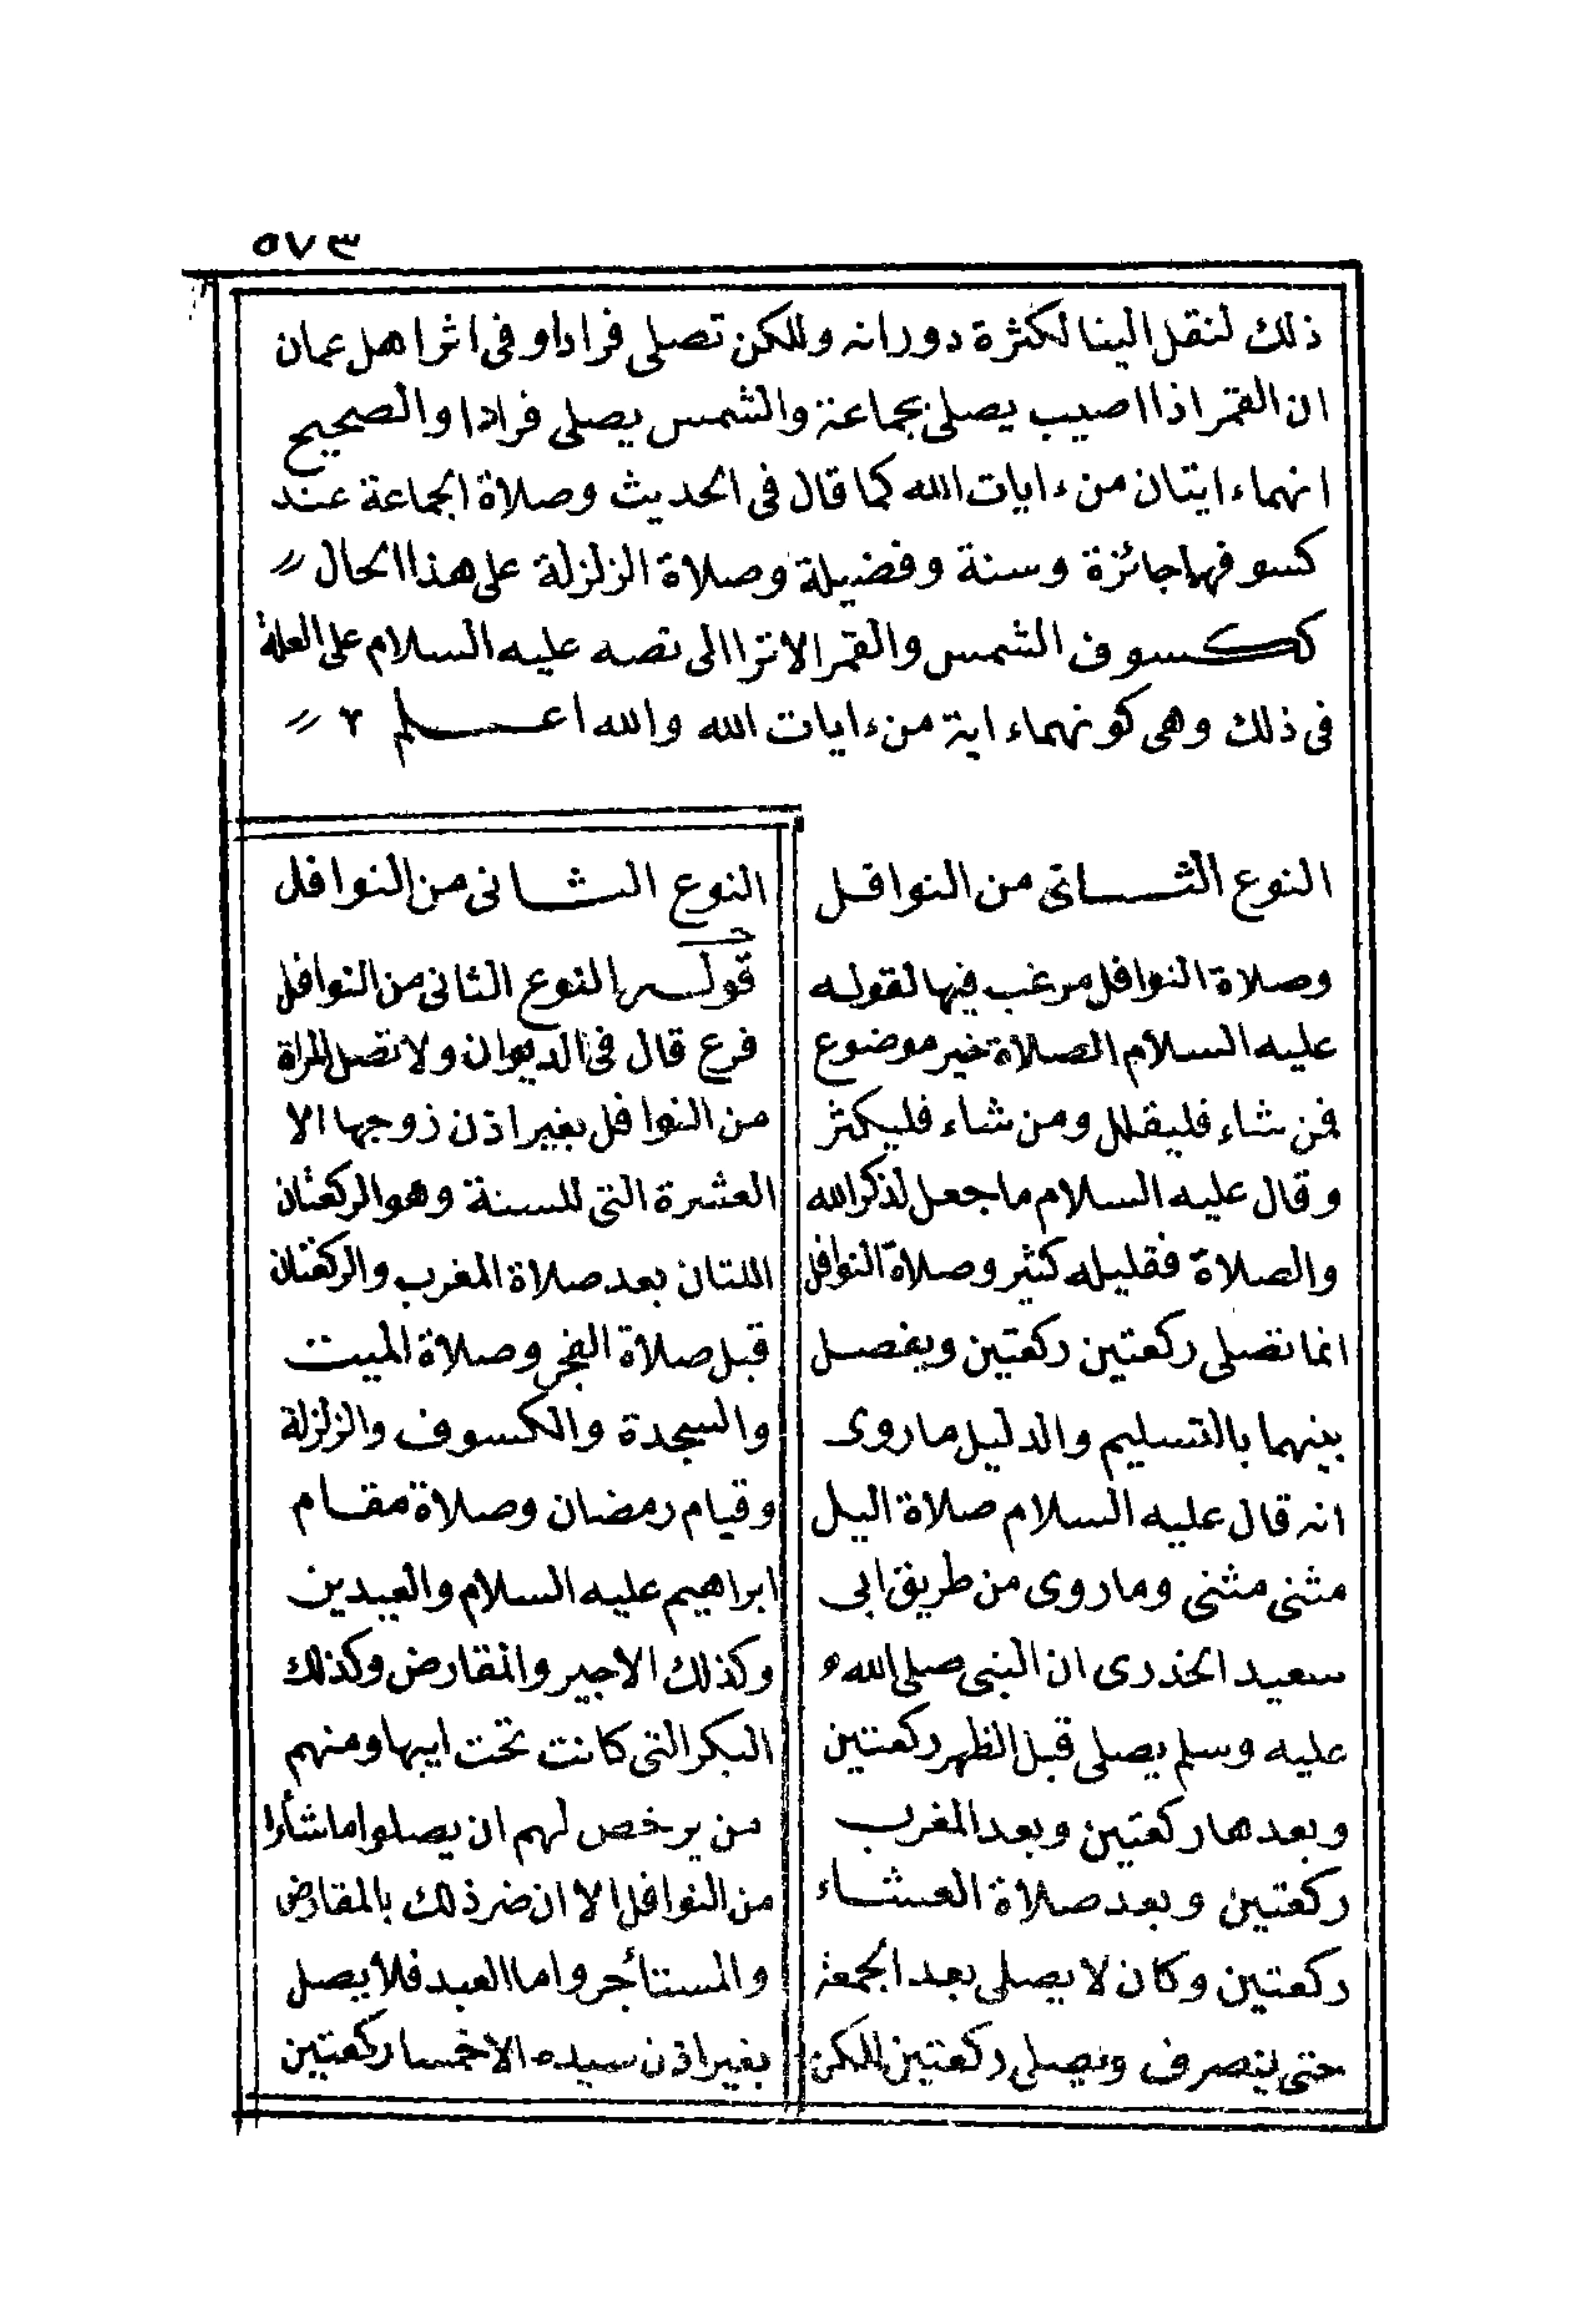 ٥٧٣
ذلك لنقل الينا لكثرة دورانه وللكن تصلى فرادا وفى اثر اهل عمان
ان القمر اذا اصيب يصلى بجماعة والشمس يصلى فرادا والصحيح
انهما ءايتان من ءايات الله كما قال فى الحديث وصلاة الجماعة عند
كسوفهما جائزة وسنة وفضيلة وصلاة الزلزلة على هذا الحال
ككسوف الشمس والقمر الا ترا الى نصه عليه السلام على العلة
فى ذلك وهى كونهما ءاية من ءايات الله والله اعلم
النوع الثانى من النوافل
وصلاة النوافل مرغب فيها لقوله
عليه السلام الصلاة خير موضوع
فمن شاء فليقلل ومن شاء فليكثر
وقال عليه السلام ما جعل لذكر الله
والصلاة فقليله كثير وصلاة النوافل
انما تصلى ركعتين ركعتين ويفصل
بينهما بالتسليم والدليل ما روى
انه قال عليه السلام صلاة اليل
مثنى مثنى وما روى من طريق ابى
سعيد الخذرى ان النبى صلى الله
عليه وسلم يصلى قبل الظهر ركعتين
وبعدها ركعتين وبعد المغرب
ركعتين وبعد صلاة العشاء
ركعتين وكان لا يصلى بعد الجمعة
حتى ينصرف ويصلى ركعتين للكن
النوع الثانى من النوافل
قوله النوع الثانى من النوافل
فرع قال فى الديوان ولا تصل المراة
من النوافل بغير اذن زوجها الا
العشرة التى للسنة وهو الركعتان
اللتان بعد صلاة المغرب والركعتان
قبل صلاة الفجر وصلاة الميت
والسجدة والكسوف والزلزلة
وقيام رمضان وصلاة مقام
ابراهيم عليه السلام والعيدين
وكذلك الاجير والمقارض وكذلك
البكر التى كانت تحت ابيها ومنهم
من يرخص لهم ان يصلوا ما شاءوا
من النوافل الا ان ضر ذلك بالمقارض
والمستأجر واما العبد فلا يصل
بغير اذن سيده الا خمسا ركعتين